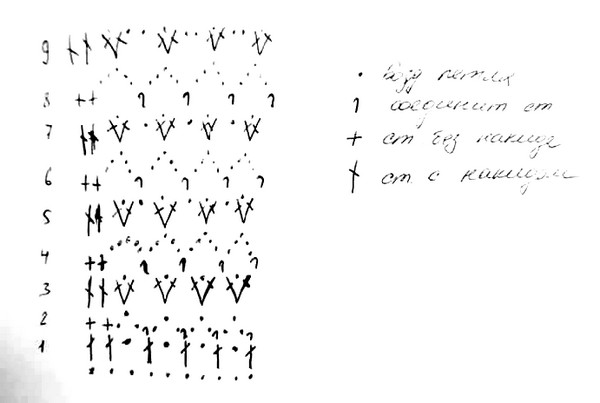 9
8
7
6
5
4
3
2
1
· возд петля
соединит ст
+ ст без накида
ст с накидом